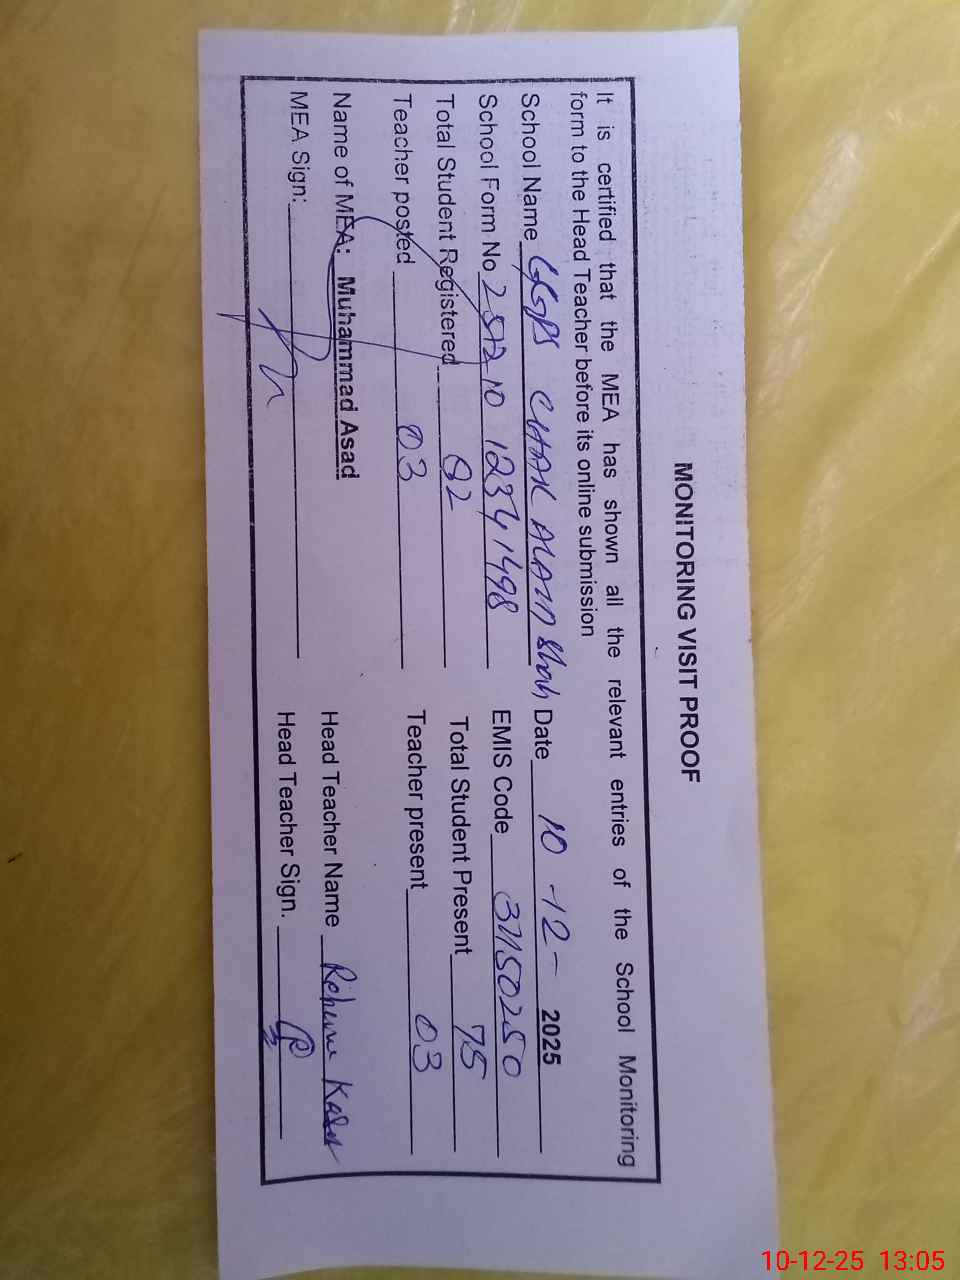 MONITORING VISIT PROOF
It is certified that the MEA has shown all the relevant entries of the School Monitoring
form to the Head Teacher before its online submission
School Name GGPS CHAK ALAM Shah Date 10-12- 2025
School Form No 2512 10 12341498 EMIS Code 37150250
Total Student Registered 82 Total Student Present 75
Teacher posted 03 Teacher present 03
Name of MEA: Muhammad Asad Head Teacher Name
MEA Sign: Head Teacher Sign.
10-12-25 13:05